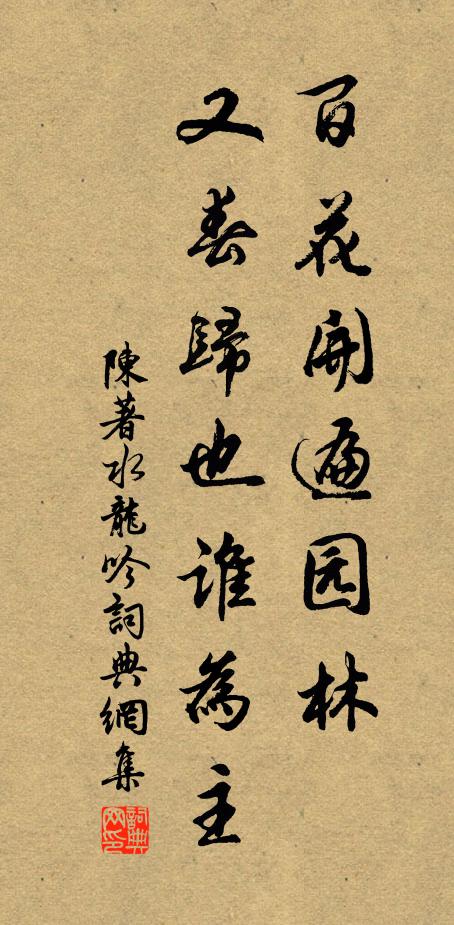 百花开遍园林
又春歸也誰為主
陳著水龍吟詞典網集
詞典网印